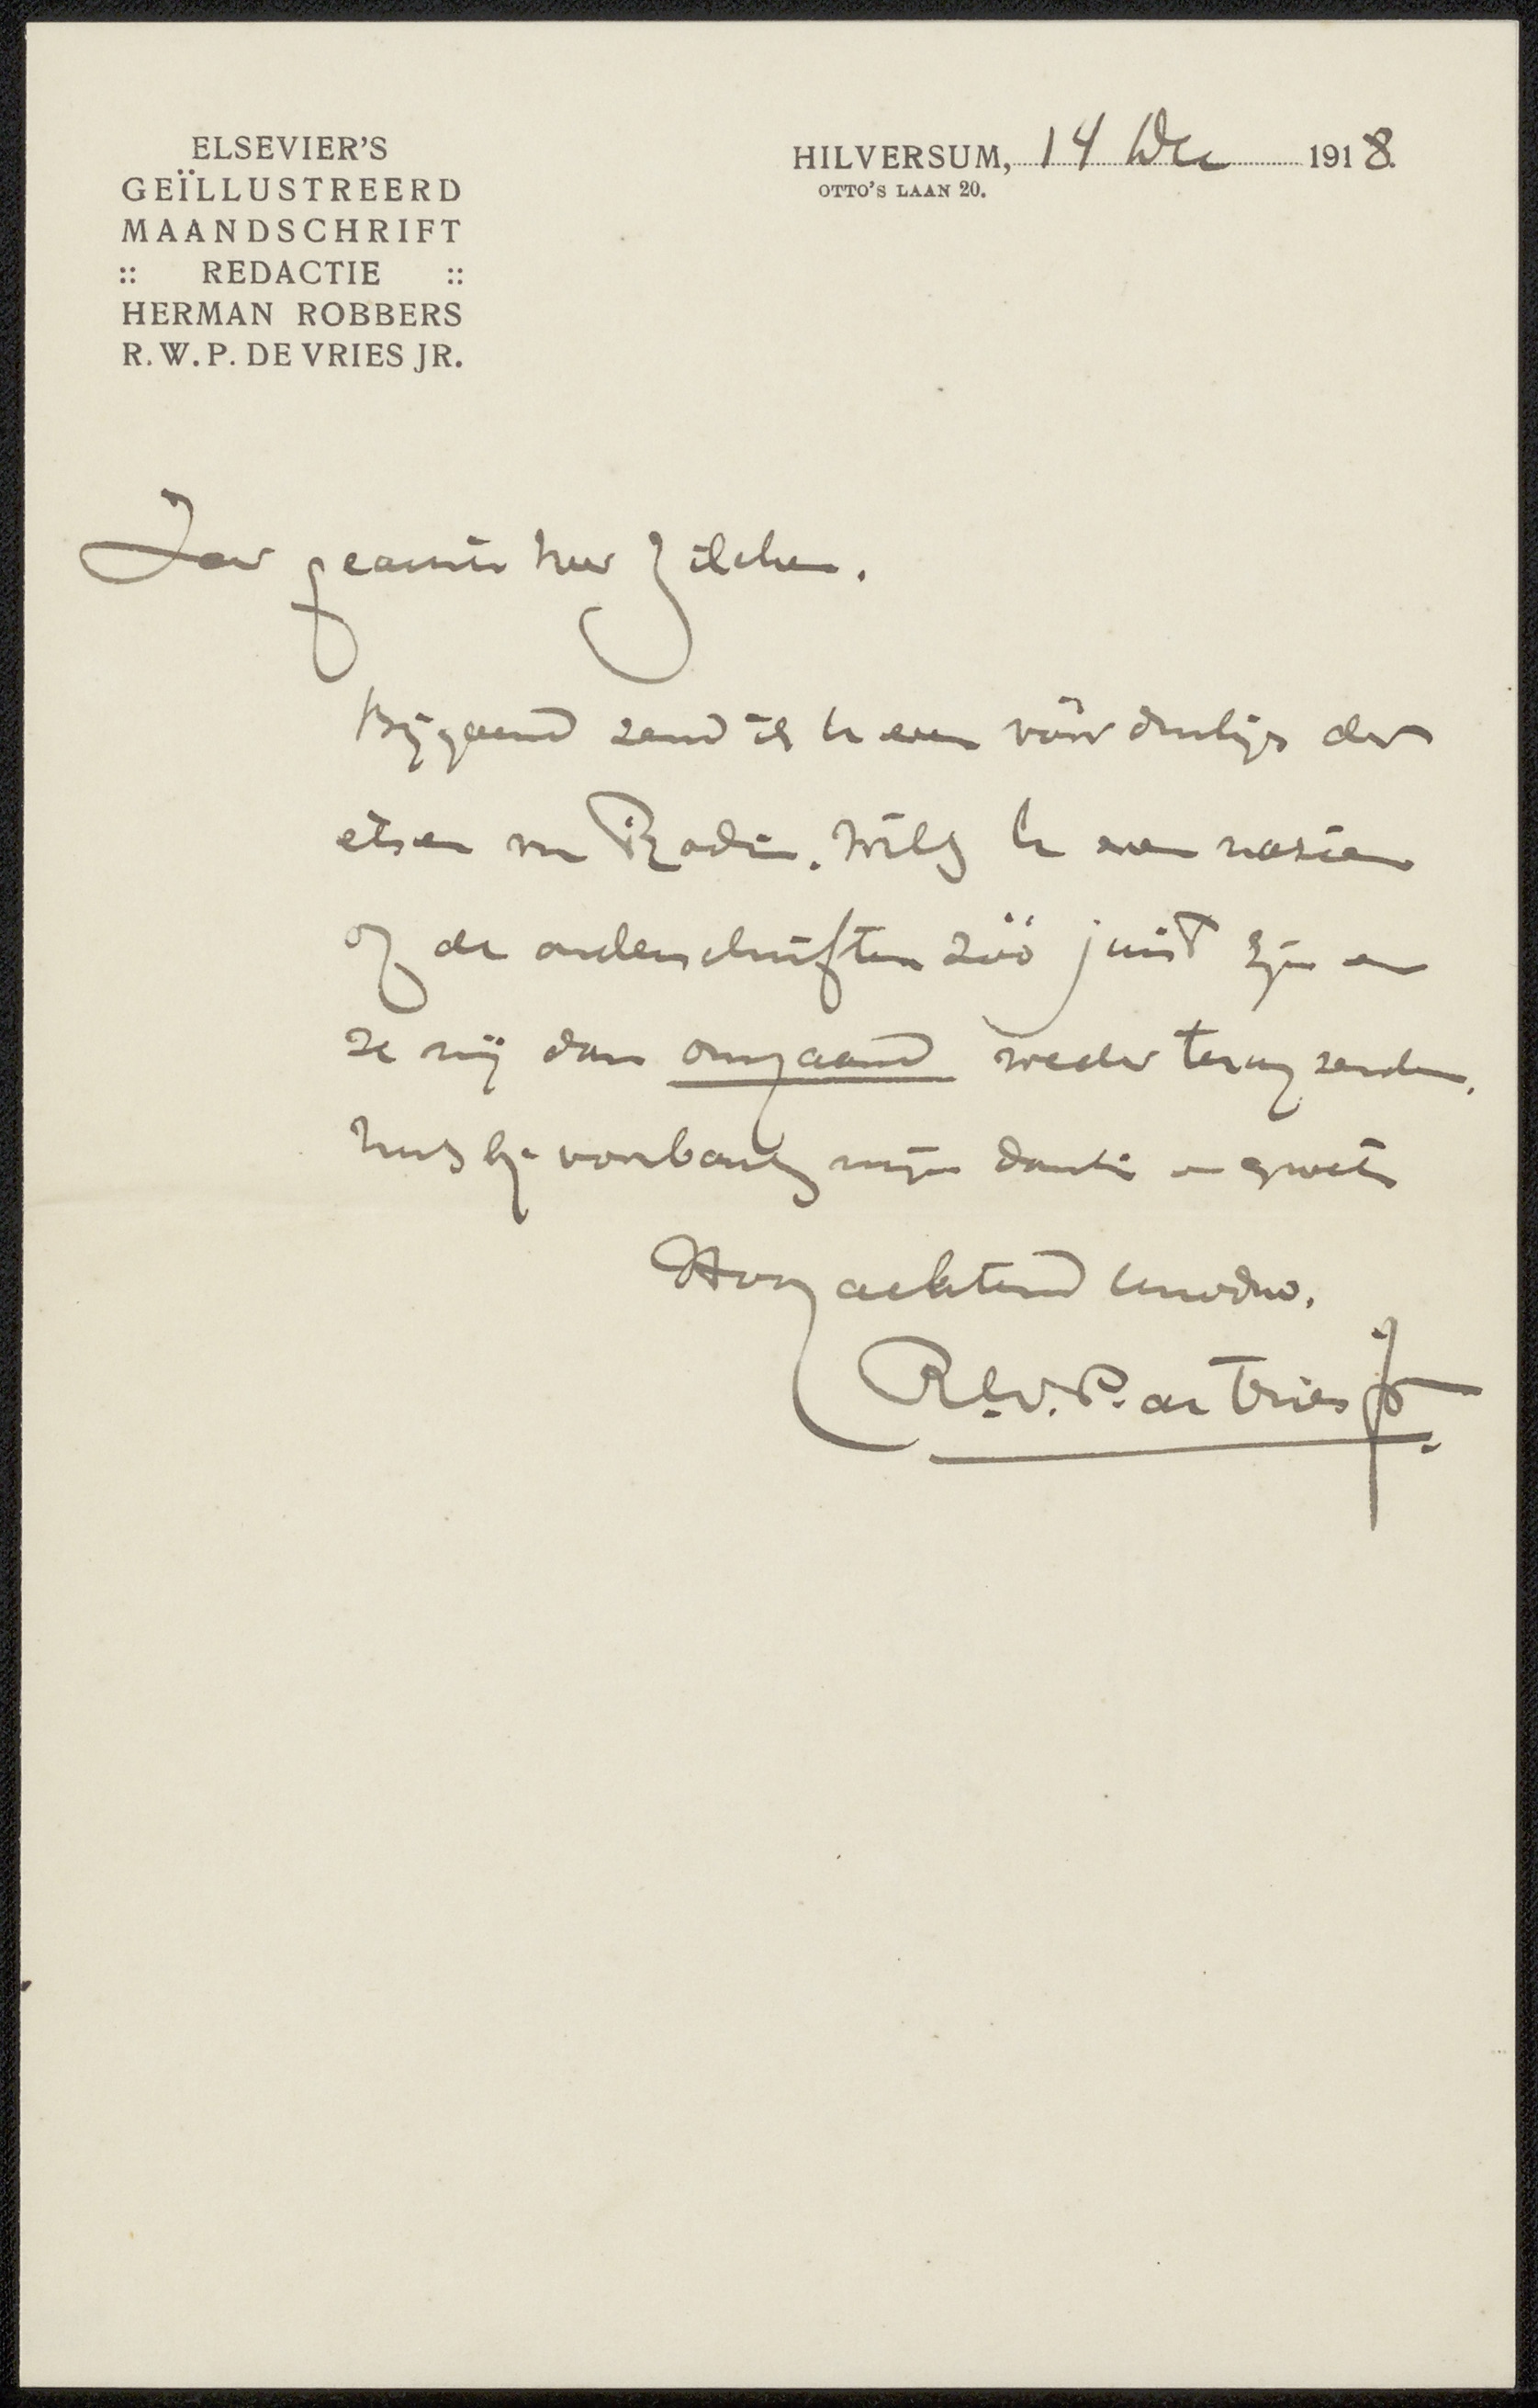 ELSEVIER'S
GEÏLLUSTREERD
MAANDSCHRIFT
:: REDACTIE ::
HERMAN ROBBERS
R.W.P. DE VRIES JR.
HILVERSUM, 14 Dec 1918.
OTTO'S LAAN 20.
Zeer geachte heer Zilcken.
Bijgaand zend ik U een vóór drukje der
etsen van Rodin. Wilt U even nazien
of de onderschriften zóó juist zijn en
ze mij dan omgaand weder terug zenden.
bij voorbaat mijn dank en groet
Hoogachtend Uwdw.
R.W.P. de Vries Jr.